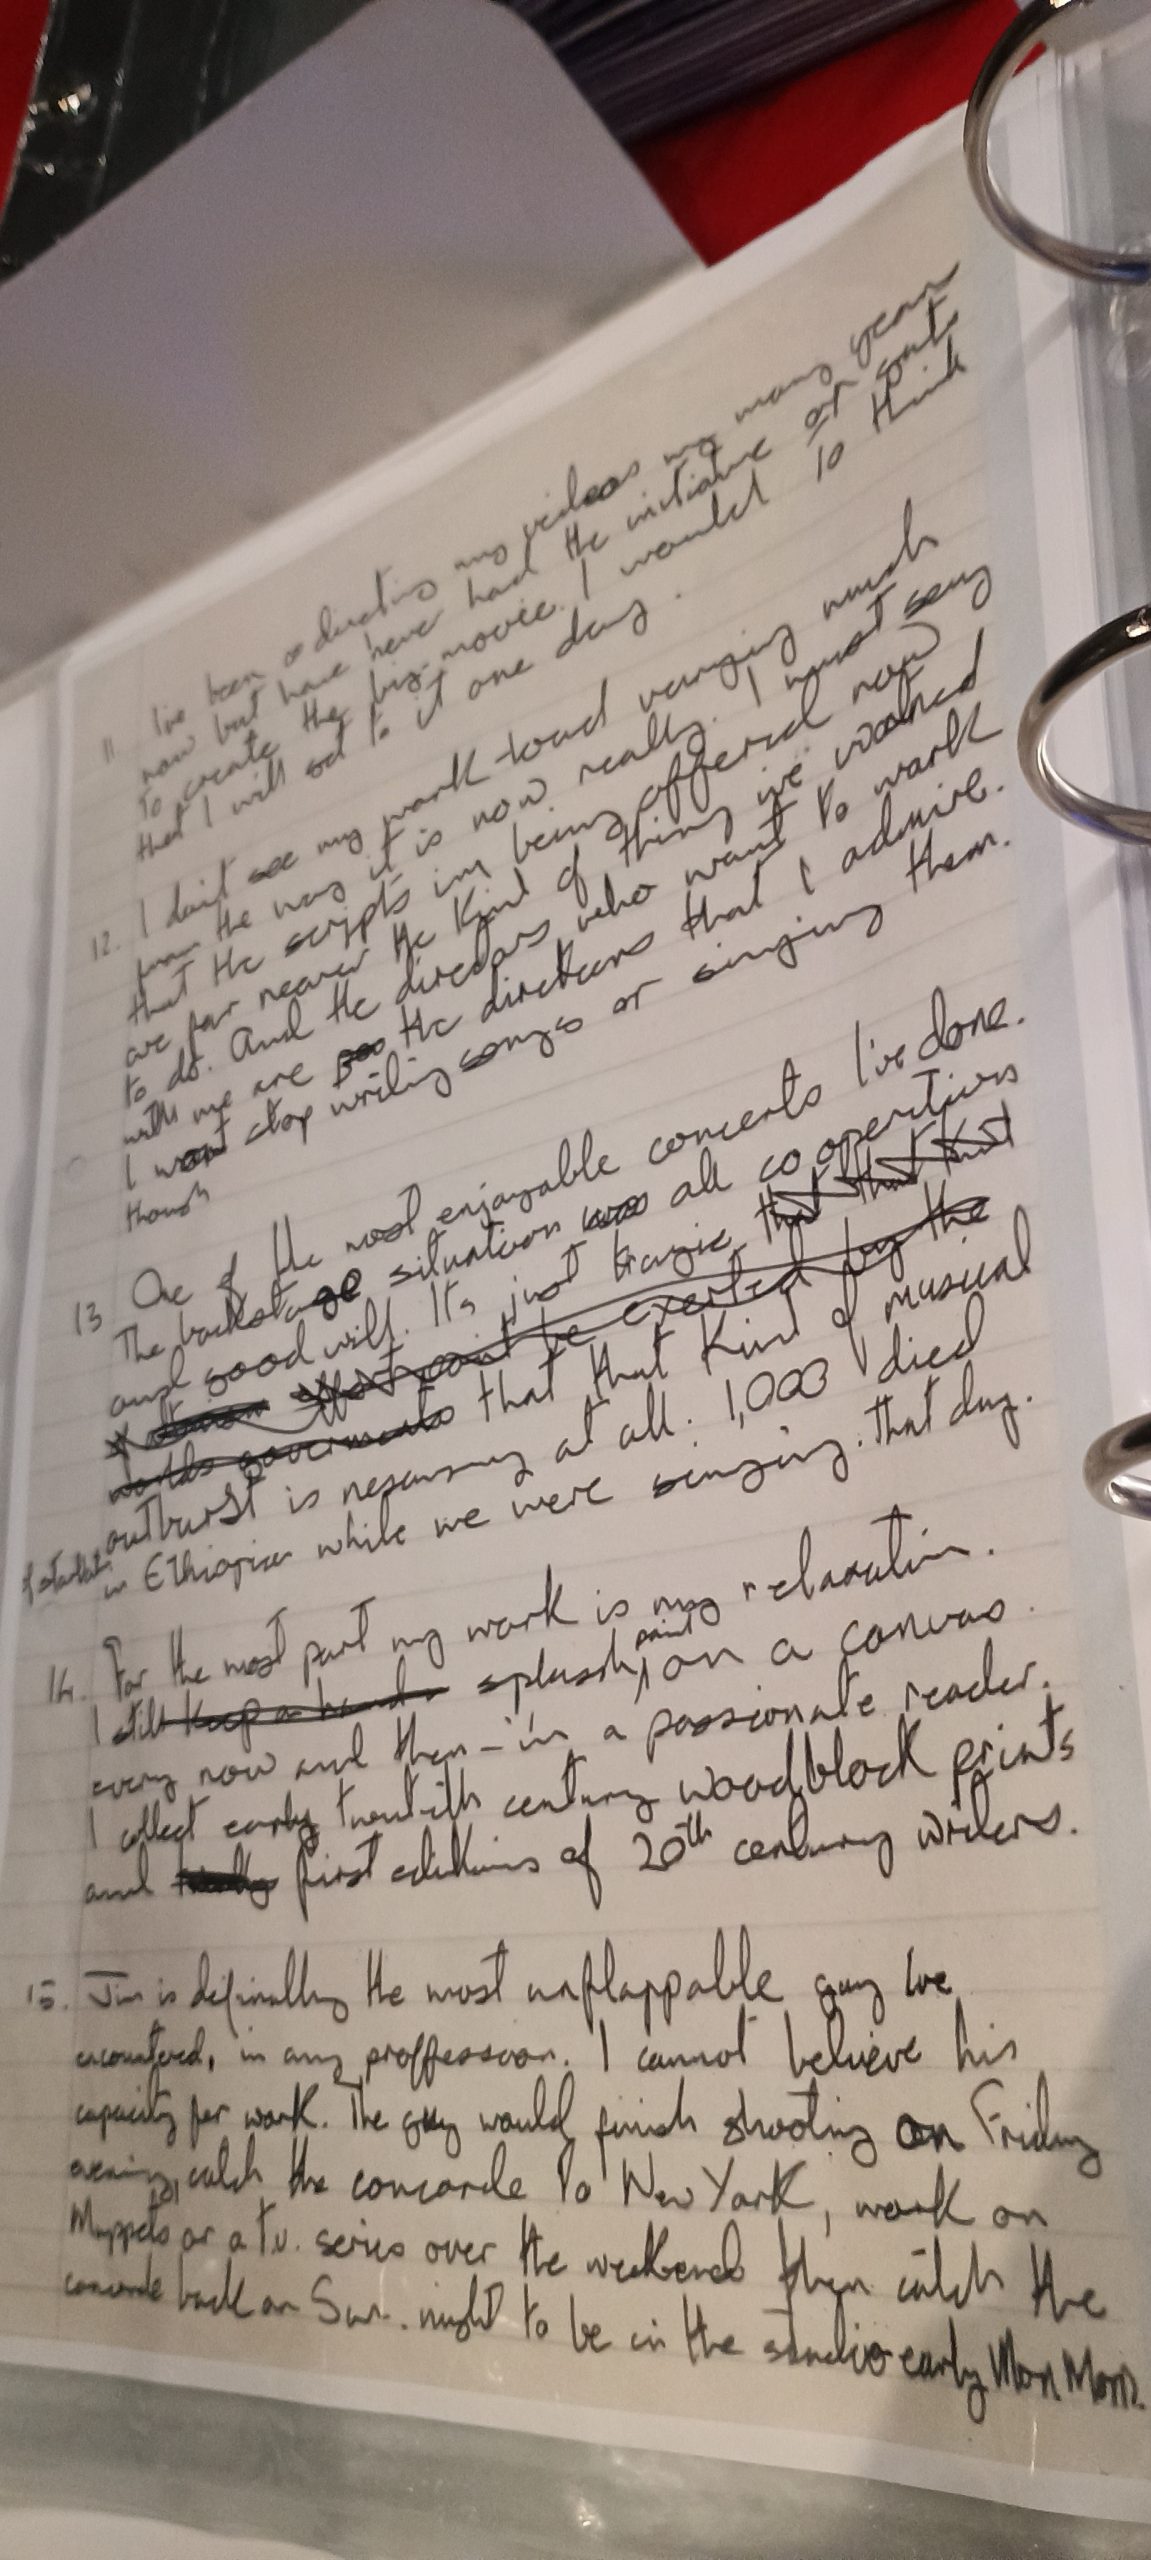 11 I've been directing my videos many years
now but have never had the initiative or contacts
to create the big movie. I would to think
that I will get to it one day.
12. I don't see my work-load varying much
from the way it is now really. I must say
that the scripts im being offered now
are far nearer the kind of thing ive wanted
to do. And the directors who want to work
with me are the directors that I admire.
I wont stop writing songs or singing them.
though
13 One of the most enjoyable concerts I've done.
The backstage situation was all cooperation
and good will. Its just tragic that that that
cant be exerted by the
worlds goverments that that kind of musical
outburst is nesessary at all. 1,000 died
of starvation in Ethiopia while we were singing. that day.
14. For the most part my work is my relaxation.
I still keep a hand splash paint on a canvas.
every now and then – i'm a passionate reader.
I collect early twentith century woodblock prints
and first editions of 20th century writers.
15. Jim is definatly the most unflappable guy Ive
encountered, in any proffession. I cannot believe his
capacity for work. The guy would finish shooting on Friday
evening, catch the concorde to New York, work on
Muppets or a T.V. series over the weekend then catch the
concorde back on Sun. night to be in the studio early Mon. Morn.